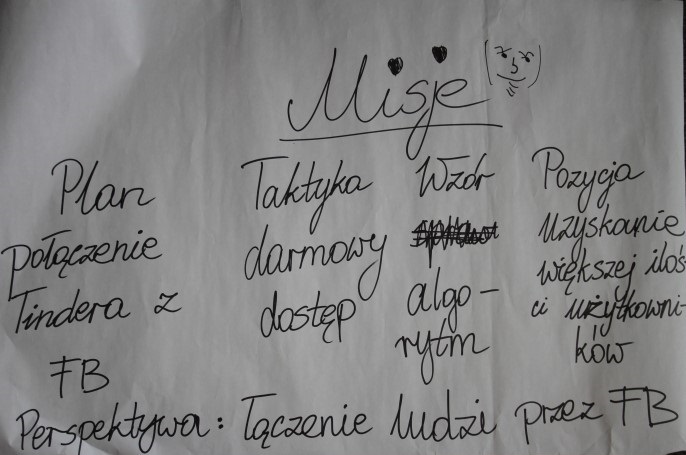 Misje
Plan
połączenie
Tindera z
FB
Taktyka
darmowy
dostęp
Wzór
algo-
rytm
Pozycja
uzyskanie
większej iloś
ci użytkowni-
ków
Perspektywa: łączenie ludzi przez FB